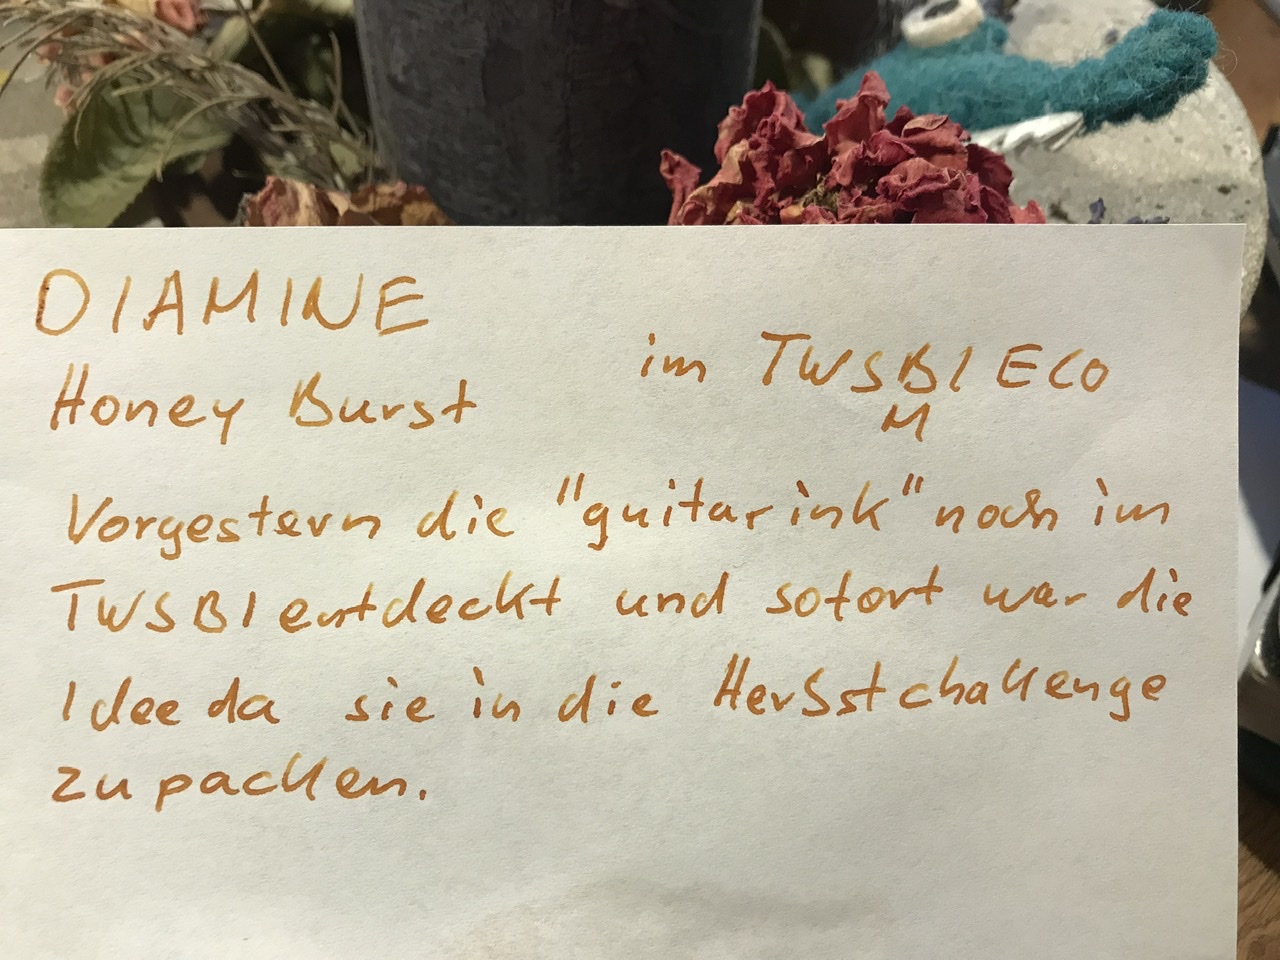 DIAMINE
Honey Burst
im TWSBI ECO
M
Vorgestern die "guitar ink" noch im
TWSBI entdeckt und sofort war die
Idee da sie in die Herbstchallenge
zu packen.